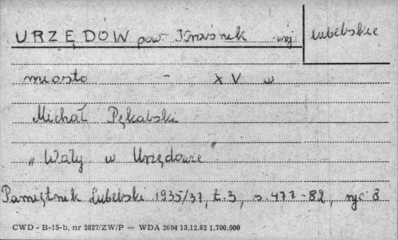 URZĘDÓW pow. Kraśnik woj. lubelskie
miasto - XV w
Michał Pękalski
"Wały w Urzędowie"
Pamiętnik Lubelski 1935/37, t.3, s 477-82, ryc 8
CWD - B-15-b, nr 2827/ZW/P — WDA 2694 13.12.62 1.700.000